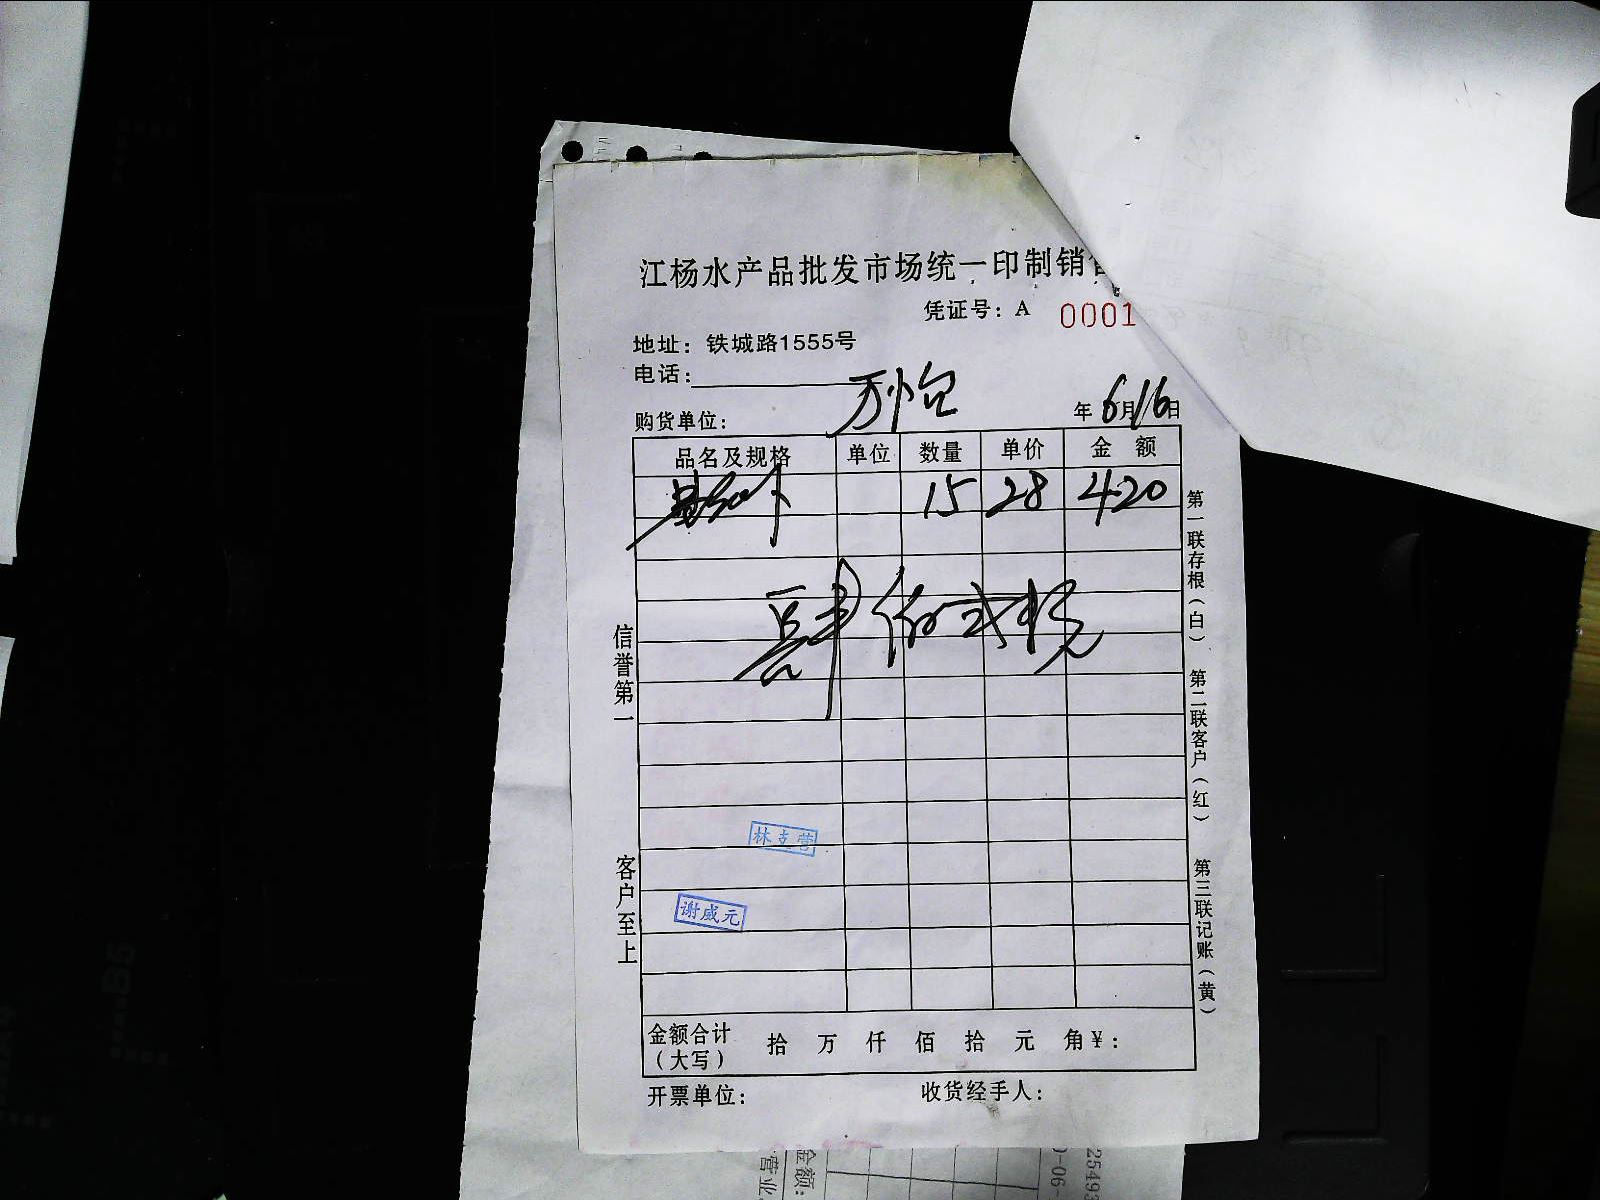 江杨水产品批发市场统一印制销售
凭证号：A 0001
地址：铁城路1555号
电话：
购货单位： 年6月16日
品名及规格 单位 数量 单价 金 额
15 28 420
肆佰贰拾元
信誉第一
客户至上
第一联存根（白）
第二联客户（红）
第三联记账（黄）
林支营
谢威元
金额合计（大写） 拾 万 仟 佰 拾 元 角￥：
开票单位： 收货经手人：
金额：
营业